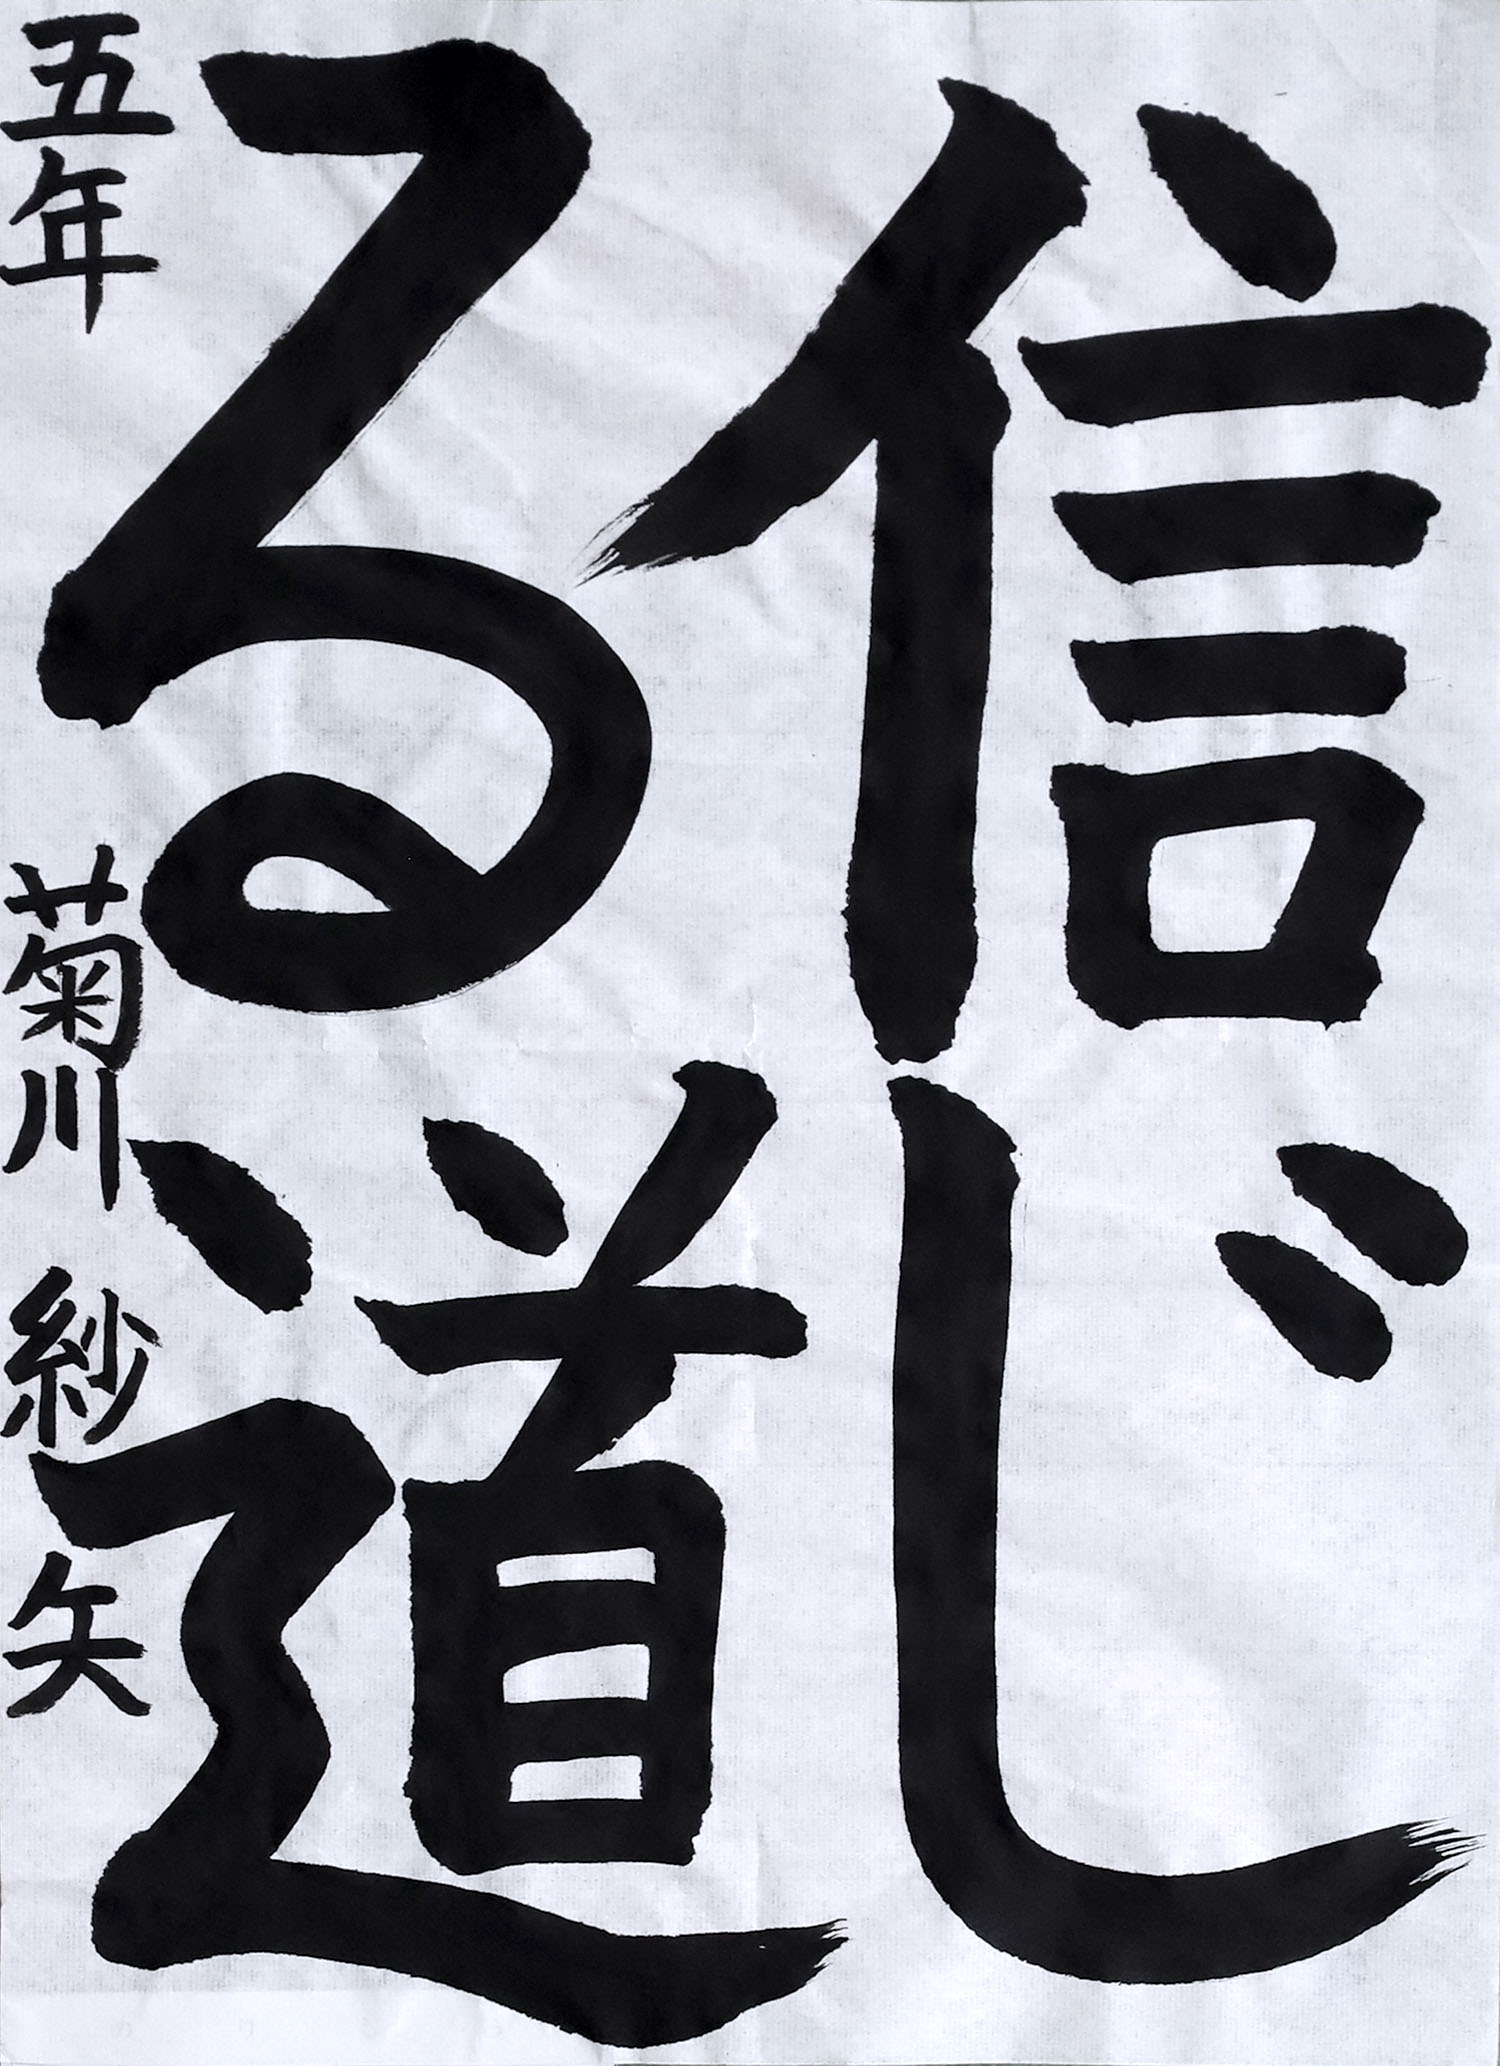 信じ
る道
五年 菊川 紗矢